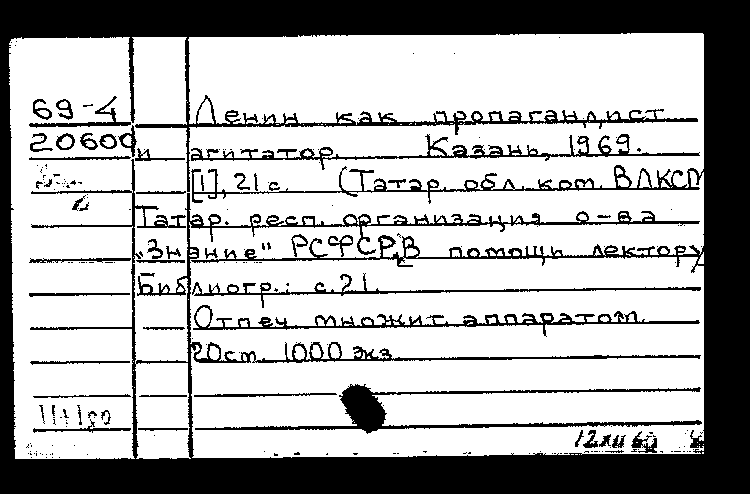 69-4 Ленин как пропагандист
20600 и агитатор. Казань, 1969.
[1], 21 с. (Татар. обл. ком. ВЛКСМ
Татар. респ. организация о-ва
„Знание" РСФСР, В помощь лектору)
Библиогр.: с. 21.
Отпеч. множит. аппаратом.
20 ст. 1000 экз.
12 XII 69